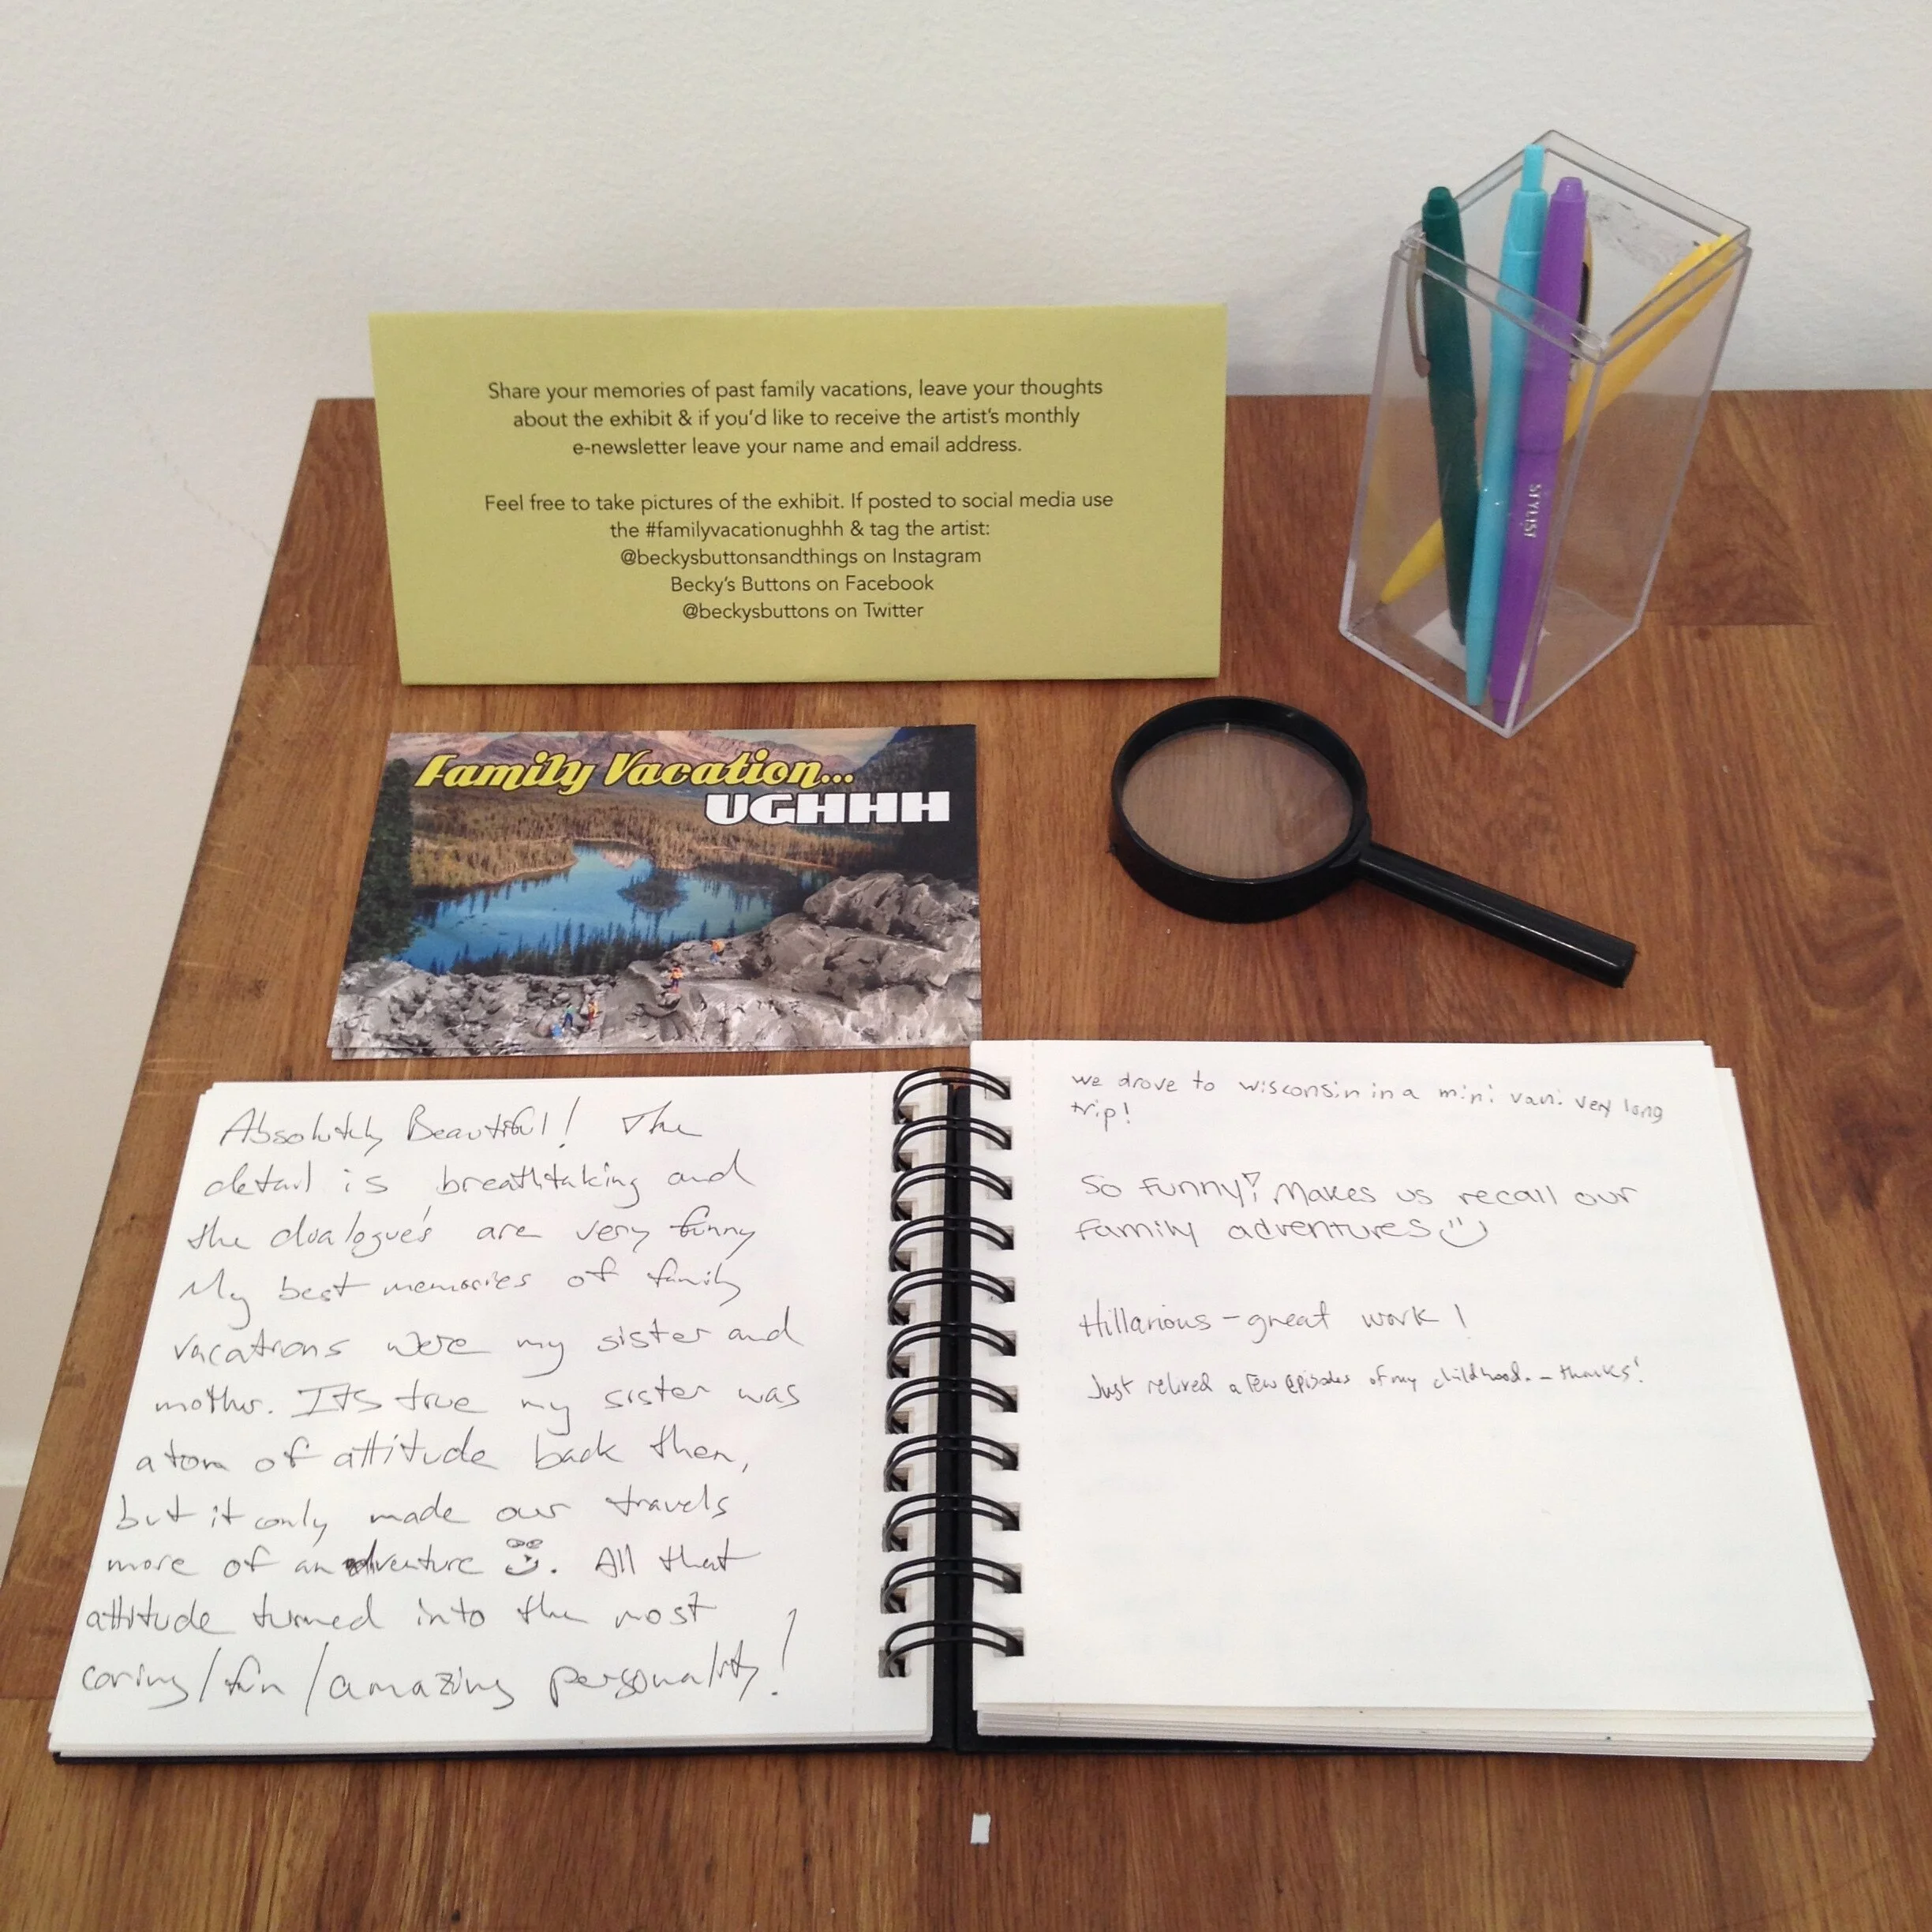 Share your memories of past family vacations, leave your thoughts
about the exhibit & if you'd like to receive the artist's monthly
e-newsletter leave your name and email address.
Feel free to take pictures of the exhibit. If posted to social media use
the #familyvacationughhh & tag the artist:
@beckysbuttonsandthings on Instagram
Becky's Buttons on Facebook
@beckysbuttons on Twitter
STYLIST
Family Vacation...
UGHHH
Absolutely Beautiful! The
detail is breathtaking and
the dialogue's are very funny
My best memories of family
vacations were my sister and
mother. Its true my sister was
a tom of attitude back then,
but it only made our travels
more of an adventure. All that
attitude turned into the most
caring/fun/amazing personality!
we drove to wisconsin in a mini van: very long
trip!
So funny! Makes us recall our
family adventures
Hillarious - great work!
Just relived a few episodes of my childhood. - thanks!